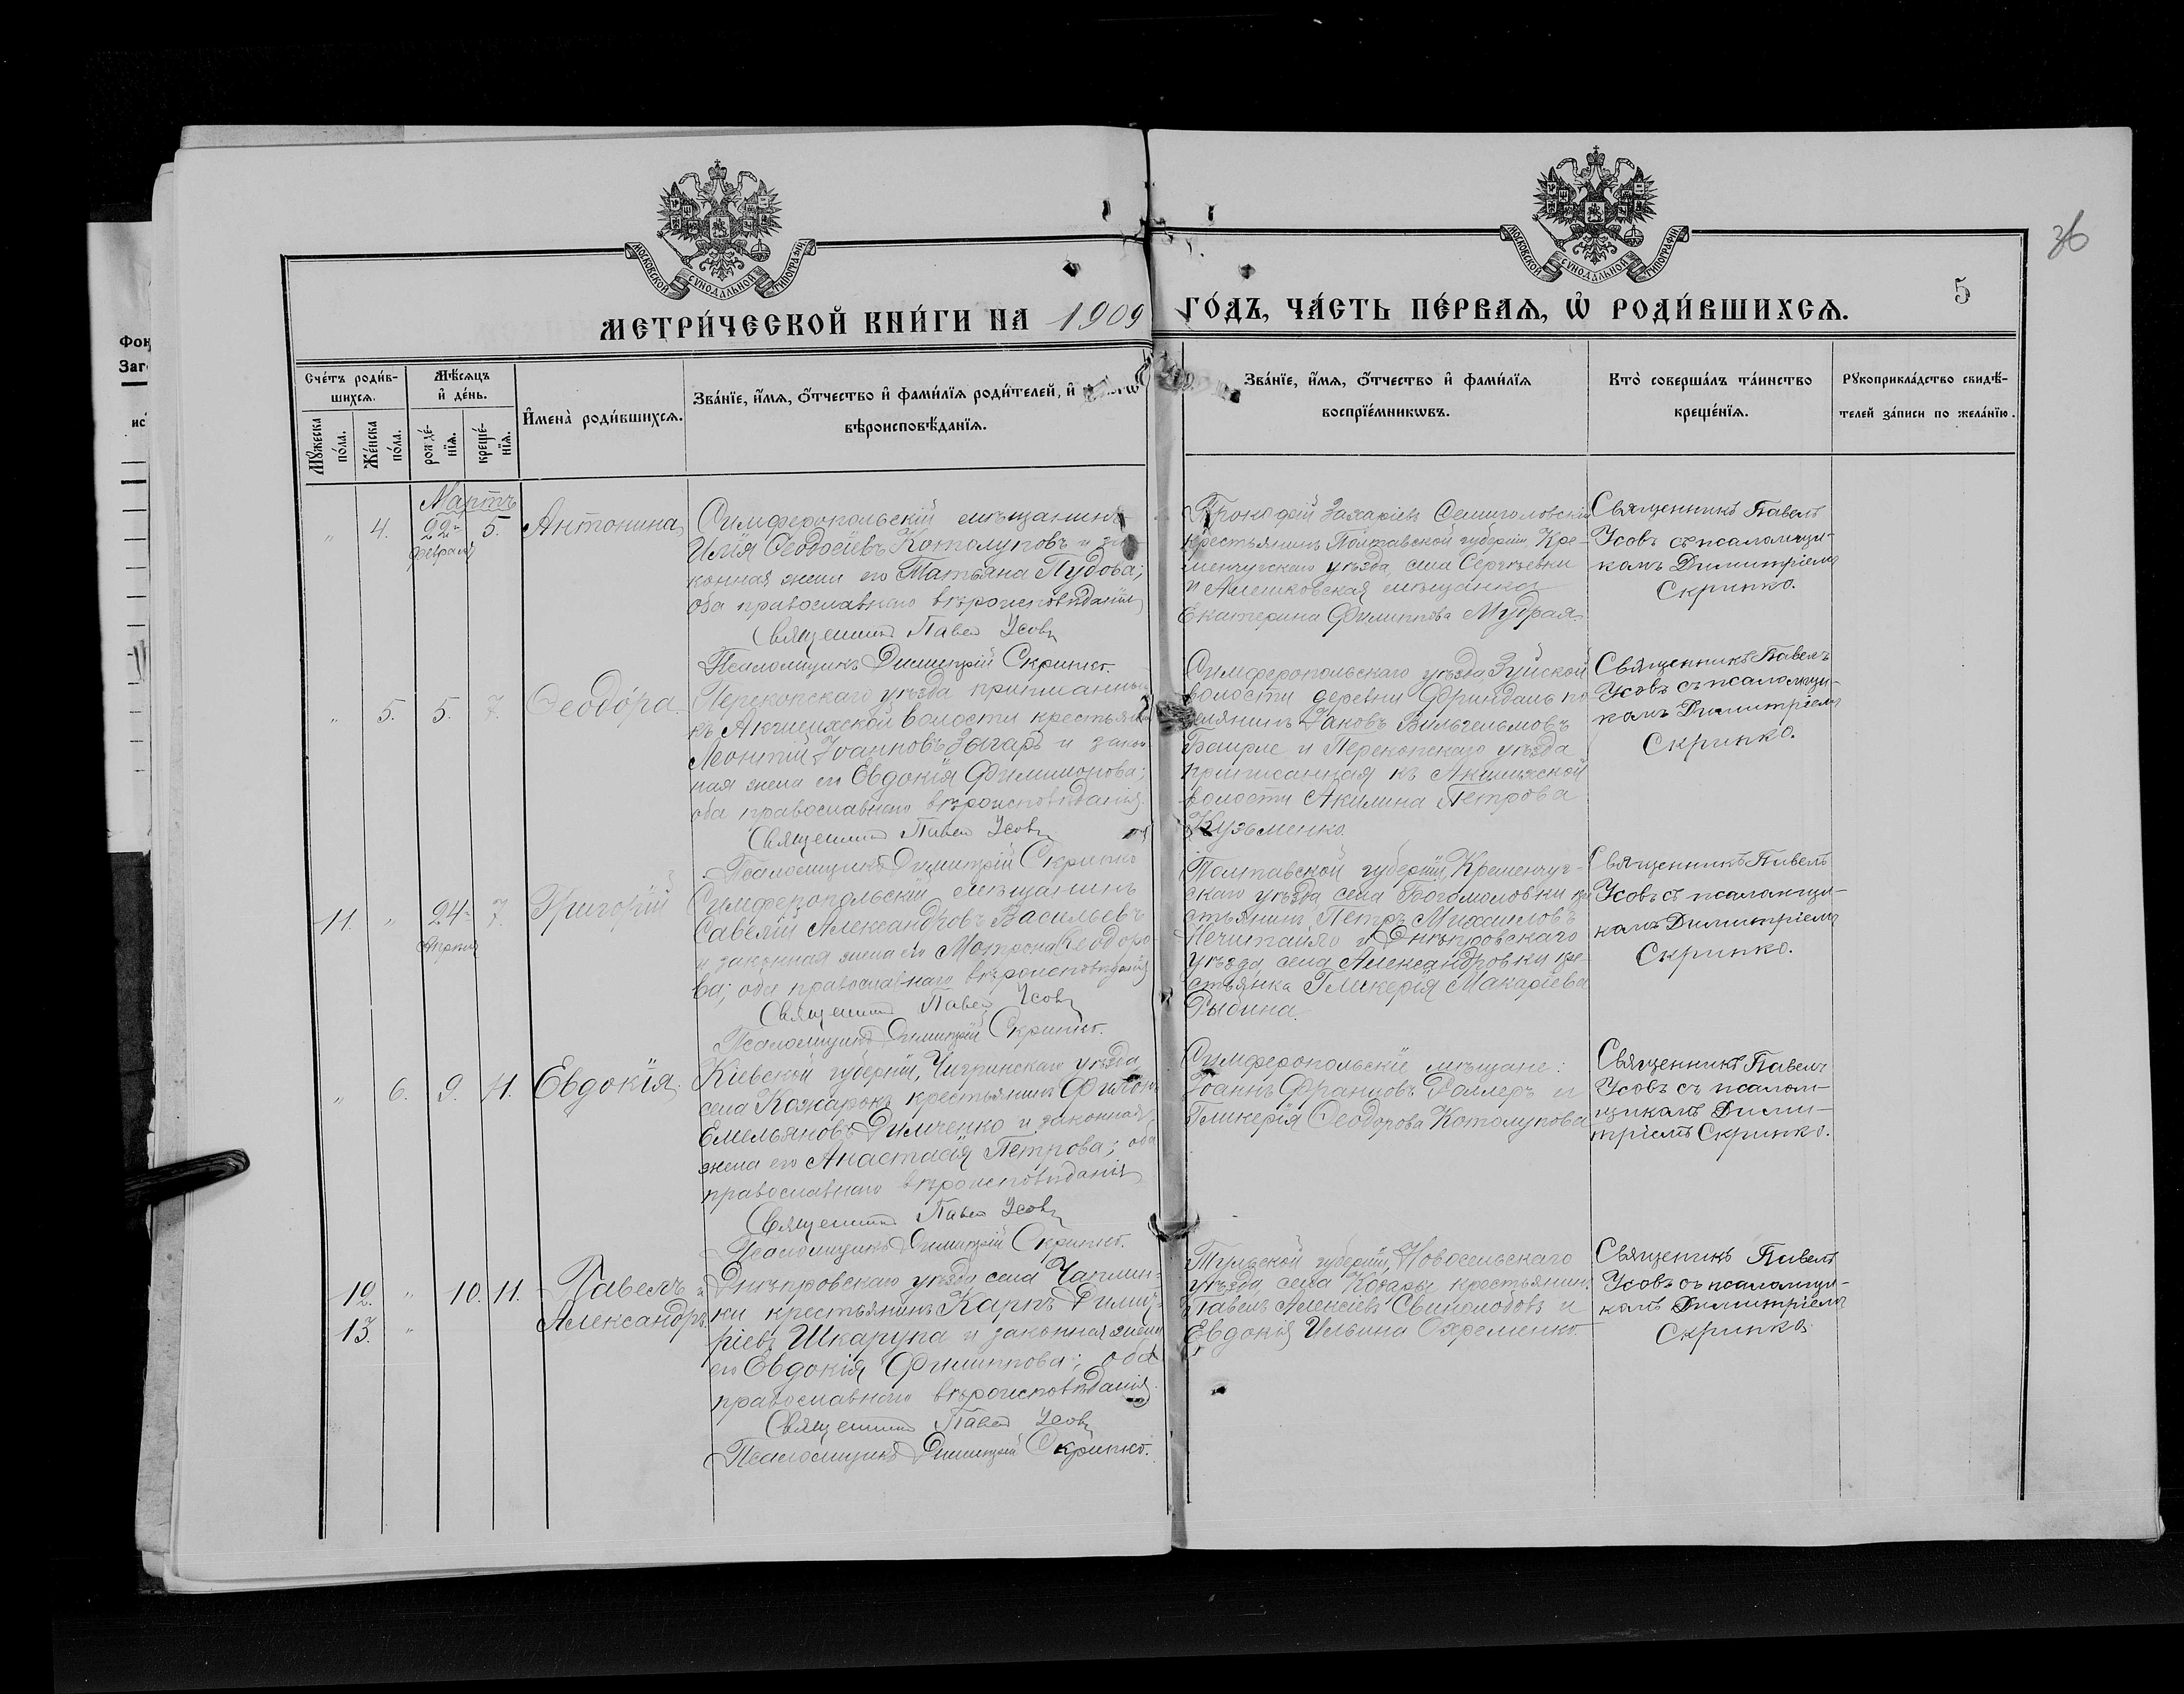 Фон
Заг
ис
МОСКОВСКОЙ СѴНОДАЛЬНОЙ ТИПОГРАФІИ
МОСКОВСКОЙ СѴНОДАЛЬНОЙ ТИПОГРАФІИ
36
5
МЕТРИ́ЧЕСКОЙ КНИ́ГИ НА 1909 ГО́ДЪ, ЧА́СТЬ ПЕ́РВАѦ, Ѽ РОДИ́ВШИХСѦ.
Сче́тъ роди́в-
шихсѧ.
Мꙋ́жеска по́ла.
Же́нска по́ла.
Мѣ́сѧцъ
и҆ де́нь.
рожде́-нїѧ.
креще́-нїѧ.
И҆мена̀ роди́вшихсѧ.
Зва́нїе, и҆́мѧ, ѻ҆́тчество и҆ фами́лїѧ роди́телей, и҆
вѣроисповѣ́данїѧ.
Зва́нїе, и҆́мѧ, ѻ҆́тчество и҆ фами́лїѧ
воспрїе́мникѡвъ.
Кто̀ соверша́лъ та́инство
креще́нїѧ.
Рꙋкоприкла́дство свидѣ́-
телей за́писи по жела́нїю.
Мартъ
" 4. 22 5. Антонина
Февраля
Симферопольскій мѣщанинъ
Илія Ѳеодосіевъ Котолуповъ и за
конная жена его Татьяна Пудова;
оба православнаго вѣроисповѣданія
Священникъ Павелъ Усовъ
Псаломщикъ Димитрій Скрипко.
Прокофій Захаріевъ Семиголовскій
крестьянинъ Полтавской губерніи, Кре-
менчугскаго уѣзда, села Сергѣевки
и Алешковская мѣщанка
Екатерина Филиппова Мудрая
Священникъ Павелъ
Усовъ съ псаломщи-
комъ Димитріемъ
Скрипко.
" 5. 5. 7. Ѳеодо́ра.
Перекопскаго уѣзда приписанный
къ волости крестьянинъ
Леонтій Іоанновъ Зыгарь и закон
ная жена его Евдокія Филимонова;
оба православнаго вѣроисповѣданія.
Священникъ Павелъ Усовъ
Псаломщикъ Димитрій Скрипко
Симферопольскаго уѣзда Зуйской
волости деревни Фриденталь по
селянинъ Іаковъ Вильгельмовъ
и Перекопскаго уѣзда
приписанная къ
волости Акилина Петрова
Кузьменко.
Священникъ Павелъ
Усовъ съ псаломщи-
комъ Димитріемъ
Скрипко.
11. " 24 7. Григорій
Симферопольскій мѣщанинъ
Савелій Александровъ Васильевъ
и законная жена его Матрона Ѳеодоро-
ва; оба православнаго вѣроисповѣданія
Священникъ Павелъ Усовъ
Псаломщикъ Димитрій Скрипко.
Полтавской губерніи, Кременчуг-
скаго уѣзда села Богомоловки кре
стьянинъ Петръ Михаиловъ
Нечитайло и Днѣпровскаго
уѣзда села Александровки кре-
стьянка Гликерія Макаріева
Рыбина.
Священникъ Павелъ
Усовъ съ псаломщи-
комъ Димитріемъ
Скрипко.
" 6. 9. 11. Евдокія.
Кіевской губерніи, Чигринскаго уѣзда
села Кожарокъ крестьянинъ
Емельяновъ Димченко и законная
жена его Анастасія Петрова; оба
православнаго вѣроисповѣданія
Священникъ Павелъ Усовъ
Псаломщикъ Димитрій Скрипко.
Симферопольскіе мѣщане:
Іоаннъ Францовъ и
Гликерія Ѳеодорова Котолупова
Священникъ Павелъ
Усовъ съ псалом-
щикомъ Дими-
тріемъ Скрипко.
12. " 10. 11. Павелъ и
13. " Александръ.
Днѣпровскаго уѣзда села Чаплин-
ки крестьянинъ Карпъ Димит-
ріевъ Шкарупа и законная жена
его Евдокія Филиппова; оба
православнаго вѣроисповѣданія.
Священникъ Павелъ Усовъ
Псаломщикъ Димитрій Скрипко.
Тульской губерніи, Новосельскаго
уѣзда села крестьянинъ
Павелъ Алексіевъ и
Евдокія Ильина Охременко.
Священикъ Павелъ
Усовъ съ псаломщи-
комъ Димитріемъ
Скрипко.